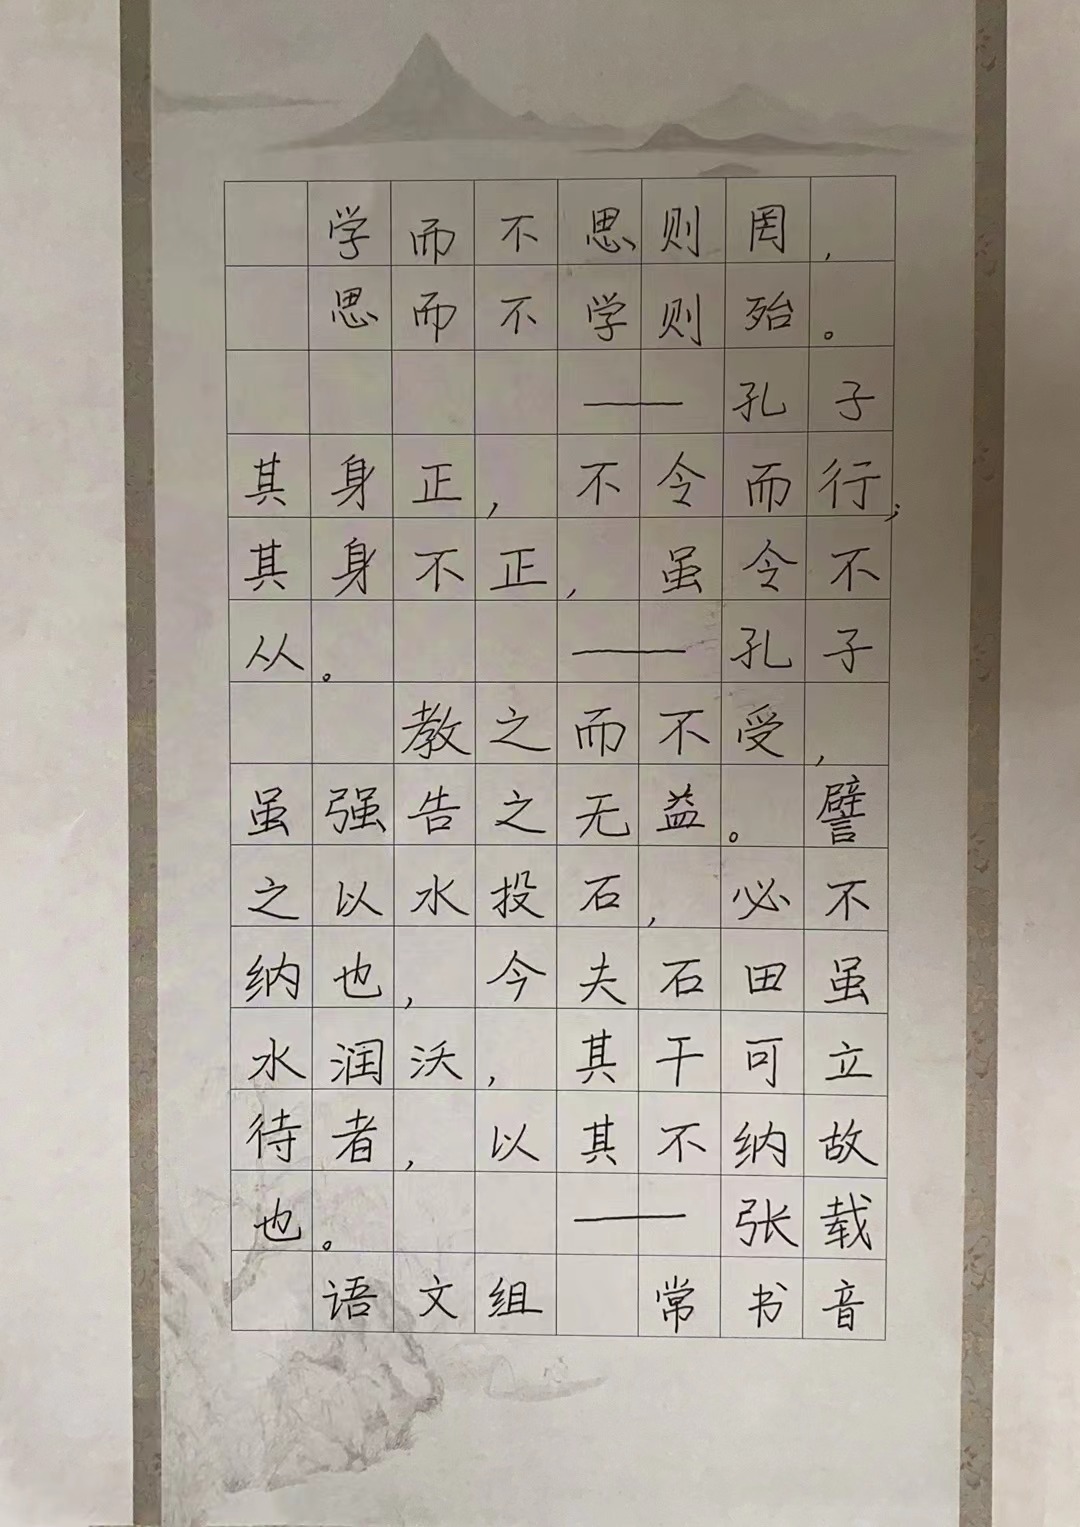 学而不思则罔，
思而不学则殆。
——孔子
其身正，不令而行；
其身不正，虽令不
从。——孔子
教之而不受，
虽强告之无益。譬
之以水投石，必不
纳也，今夫石田虽
水润沃，其干可立
待者，以其不纳故
也。——张载
语文组 常书音